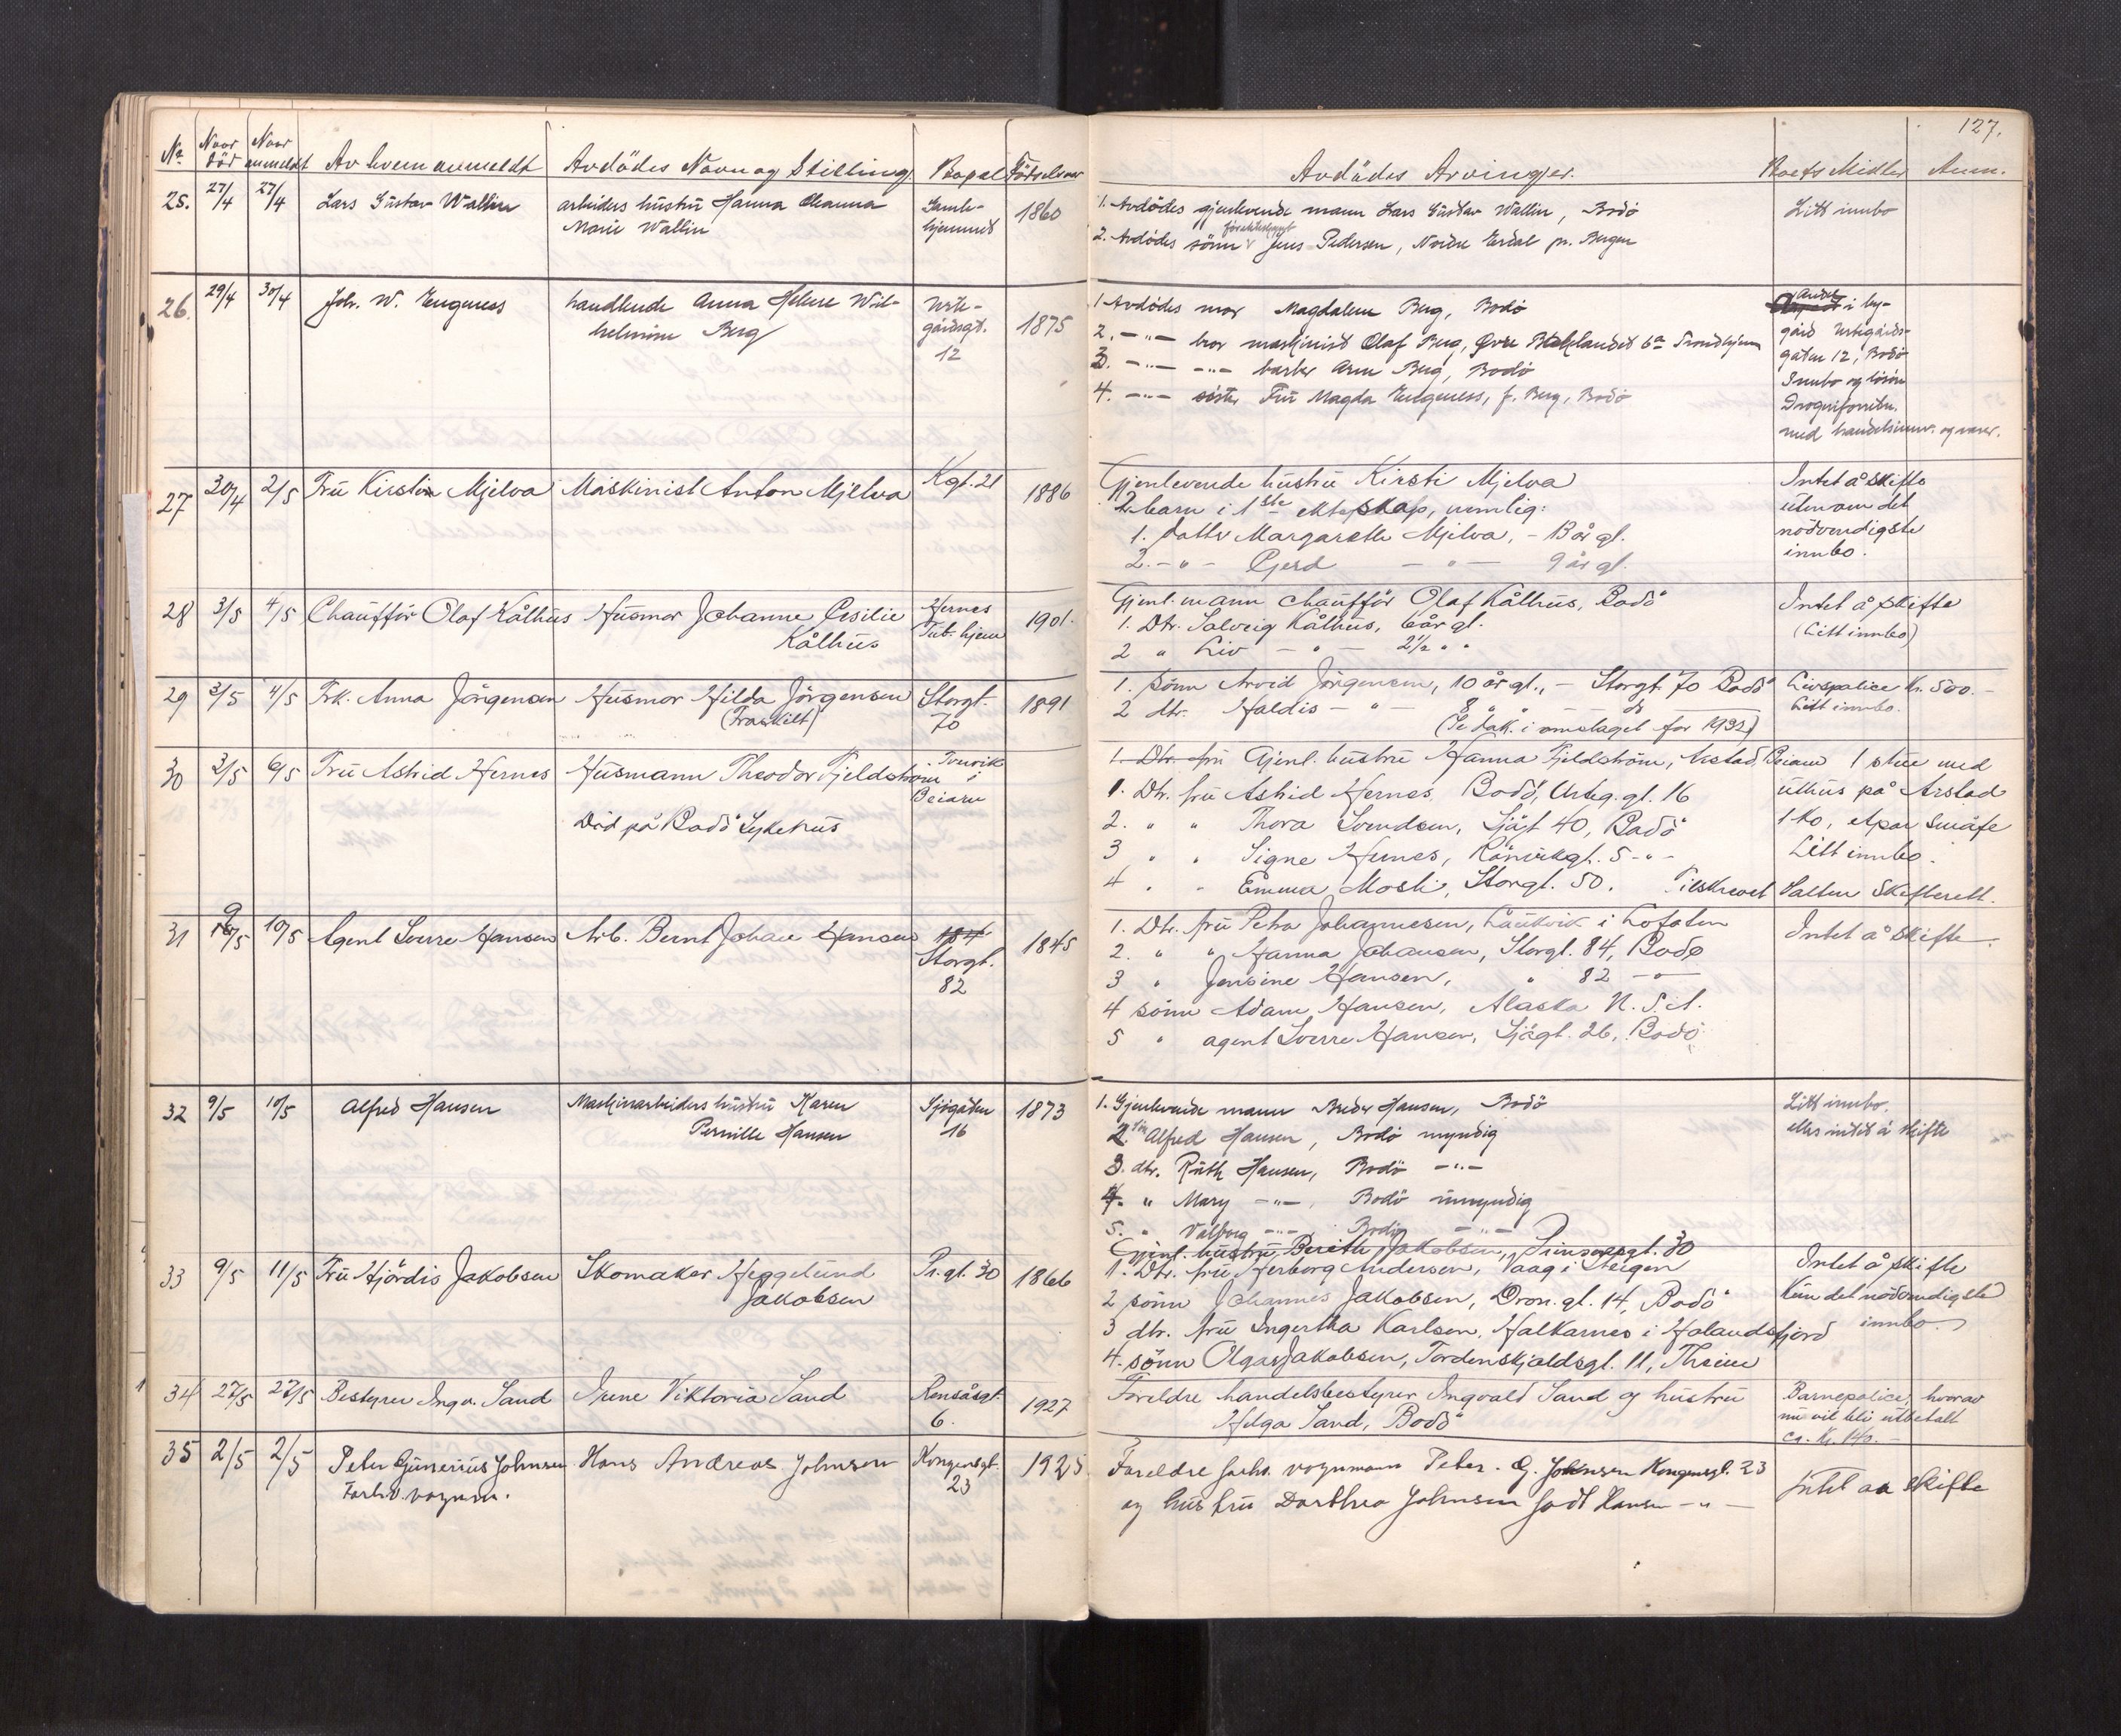 127.
No. Naar död Naar anmeldt Av hvem anmeldt Avdödes Navn og Stilling Bopæl Födselsaar Avdödes Arvinger. Boets Midler Anm.
25. 27/4 27/4 Lars Gustav Wallin arbeiders hustru Hanna Oleanna Marie Wallin 1860
1. Avdödes gjenlevende mann Lars Gustav Wallin, Bodö
2. Avdödes sönn Jens Pedersen, Nordre pr. Bergen
Litt innbo
26. 29/4 30/4 Joh. W. Engeness handlende Anna Helene Wil-
helmine Berg
gårdsgt.
12
1875
1 Avdödes mor Magdalene Berg, Bodö
2. -"- bror maskinist Olaf Berg, Øvre 6a Trondhjem
3. -"- -"- Arne Berg, Bodö
4. -"- söster Fru Magda Engeness, f. Berg, Bodö
Andel i by-
gård Urtegårds-
gaten 12, Bodö
Innbo og lösöre
med handelsinnv. og varer.
27 30/4 2/5 Fru Kirstin Mjelva Maskinist Anton Mjelva Kgt. 21 1886
Gjenlevende hustru Kirsti Mjelva
2 barn i 1ste ekteskap, nemlig:
1. Datter Margarethe Mjelva, - 13 år gl.
2. - " - Gjerd - " - 9 år gl.
Intet å skifte
uten om det
nödvendigste
innbo.
28 3/5 4/5 Chaufför Olaf Kålhus Husmor Johanne Cesilie
Kålhus
Hernes
Tub. hjem
1901.
Gjenl. mann chaufför Olaf Kålhus, Bodö
1. Dtr. Solveig Kålhus, 6 år gl.
2 " Liv - " - 2½ " "
Intet å skifte
(Litt innbo)
29 3/5 4/5 Frk. Anna Jörgensen Husmor Hilda Jörgensen
(Fraskilt)
Storgt.
70
1891
1. Sönn Arvid Jörgensen, 10 år gl., - Storgt. 70 Bodö
2 dtr. Haldis - " - 8 " " - do
(Se dok. i omslaget for 1932)
Livspolice Kr. 500.-
Litt innbo.
30 3/5 6/5 Fru Astrid Hernes Husmann Theodor Fjeldström
Död på Bodö Sykehus
i
Beiarn
1. Dtr. fru Gjenl. hustru Hanna Fjeldström, Arstad, Beiarn
1. Dtr. fru Astrid Hernes, Bodö, Urteg. gt. 16
2. " " Thora Svendsen, Sjögt 40, Bodö
3 " " Signe Hernes, Rönvikgt. 5 - " -
4 " " Emma Mosli, Storgt. 50. Tilskrevet Salten Skifterett.
1 stue med
uthus på Arstad
1 ko, et par småfe
Litt innbo.
31 9/5 10/5 Agent Sverre Hansen Arb. Bernt Johan Hansen
Storgt.
82
1845
1. Dtr. fru Petra Johannesen, Laukvik i Lofoten
2. " " Hanna Johansen, Storgt. 84, Bodö
3 " Jensine Hansen, " 82 - " -
4 sönn Adam Hansen, Alaska U. S. A.
5 " agent Sverre Hansen, Sjögt. 26, Bodö
Intet å skifte.
32 9/5 10/5 Alfred Hansen Maskinarbeiders hustru Karen
Pernille Hansen
Sjögaten
16
1873
1. Gjenlevende mann Peder Hansen, Bodö
2. Sön Alfred Hansen, Bodö myndig
3. dtr. Ruth Hansen, Bodö -"-
4. " Mary -"-, Bodö umyndig
5. " Valborg -"- Bodö -"-
Litt innbo.
ellers intet å skifte
33 9/5 11/5 Fru Hjördis Jakobsen Skomaker Heggelund
Jakobsen
Pr. gt. 30 1866
Gjenl. hustru Berith Jakobsen, Prinsensgt. 30
1. Dtr. fru Herborg Andersen, Vaag i Steigen
2 sönn Johannes Jakobsen, Dron. gt. 14, Bodö
3 dtr. fru Ingertha Karlsen, Halkarnes i Holandsfjord
4. sönn Olgar Jakobsen, Tordenskjoldsgt. 11, Thr.heim
Intet å skifte
Kun det nödvendigste
innbo.
34 27/5 27/5 Bestyrer Ingv. Sand Irene Viktoria Sand Rensåsgt.
6.
1927
Foreldre handelsbestyrer Ingvald Sand og hustru
Helga Sand, Bodö
Barnepolice, hvorav
nu vil bli utbetalt
ca. Kr. 140.-
35 2/5 2/5 Peter Gunerius Johnsen
Forhv. vognm.
Hans Andreas Johnsen Kongensgt.
23
1925
Foreldre forhv. vognmann Peter. G. Johnsen Kongensgt. 23
og hustru Dorthea Johnsen födt Hansen - " -
Intet aa skifte